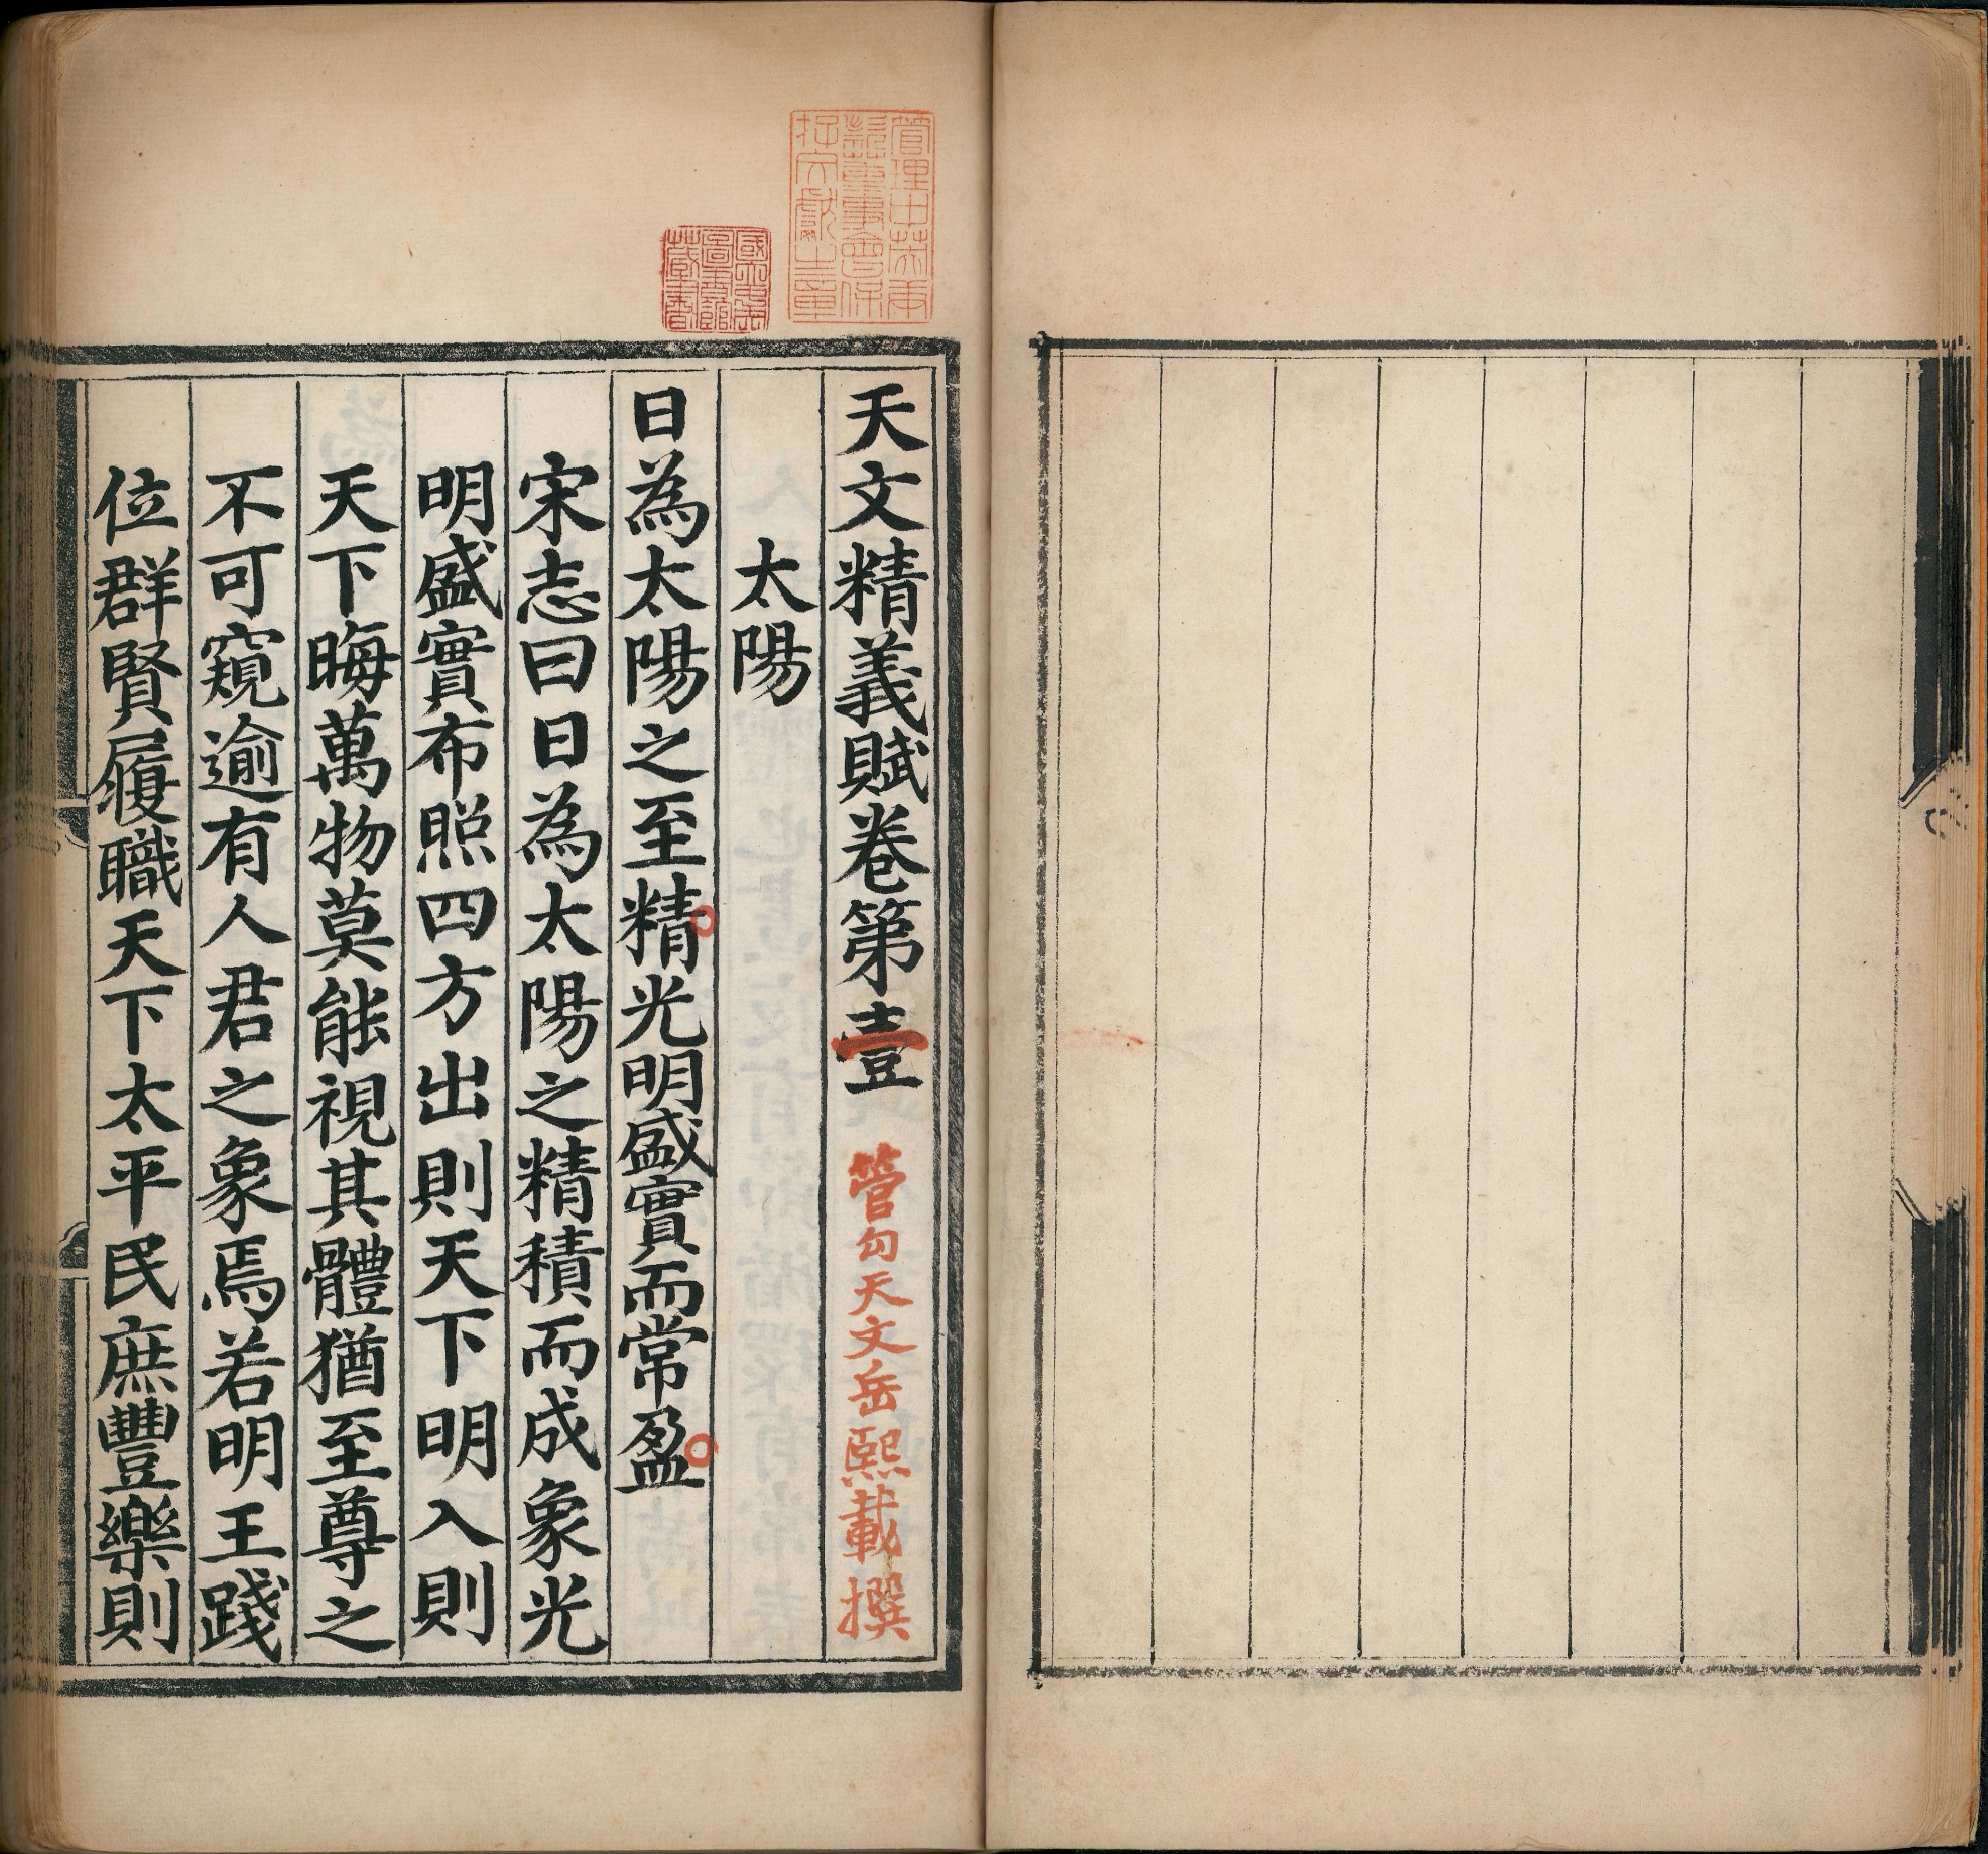 管理中英庚
款董事會保
存文獻之章
國立中央
圖書館
藏書
天文精義賦卷第壹 管勾天文岳熙載撰
太陽
日為太陽之至精光明盛實而常盈
宋志曰日為太陽之精積而成象光
明盛實布照四方出則天下明入則
天下晦萬物莫能視其體猶至尊之
不可窺逾有人君之象焉若明王踐
位群賢履職天下太平民庶豐樂則